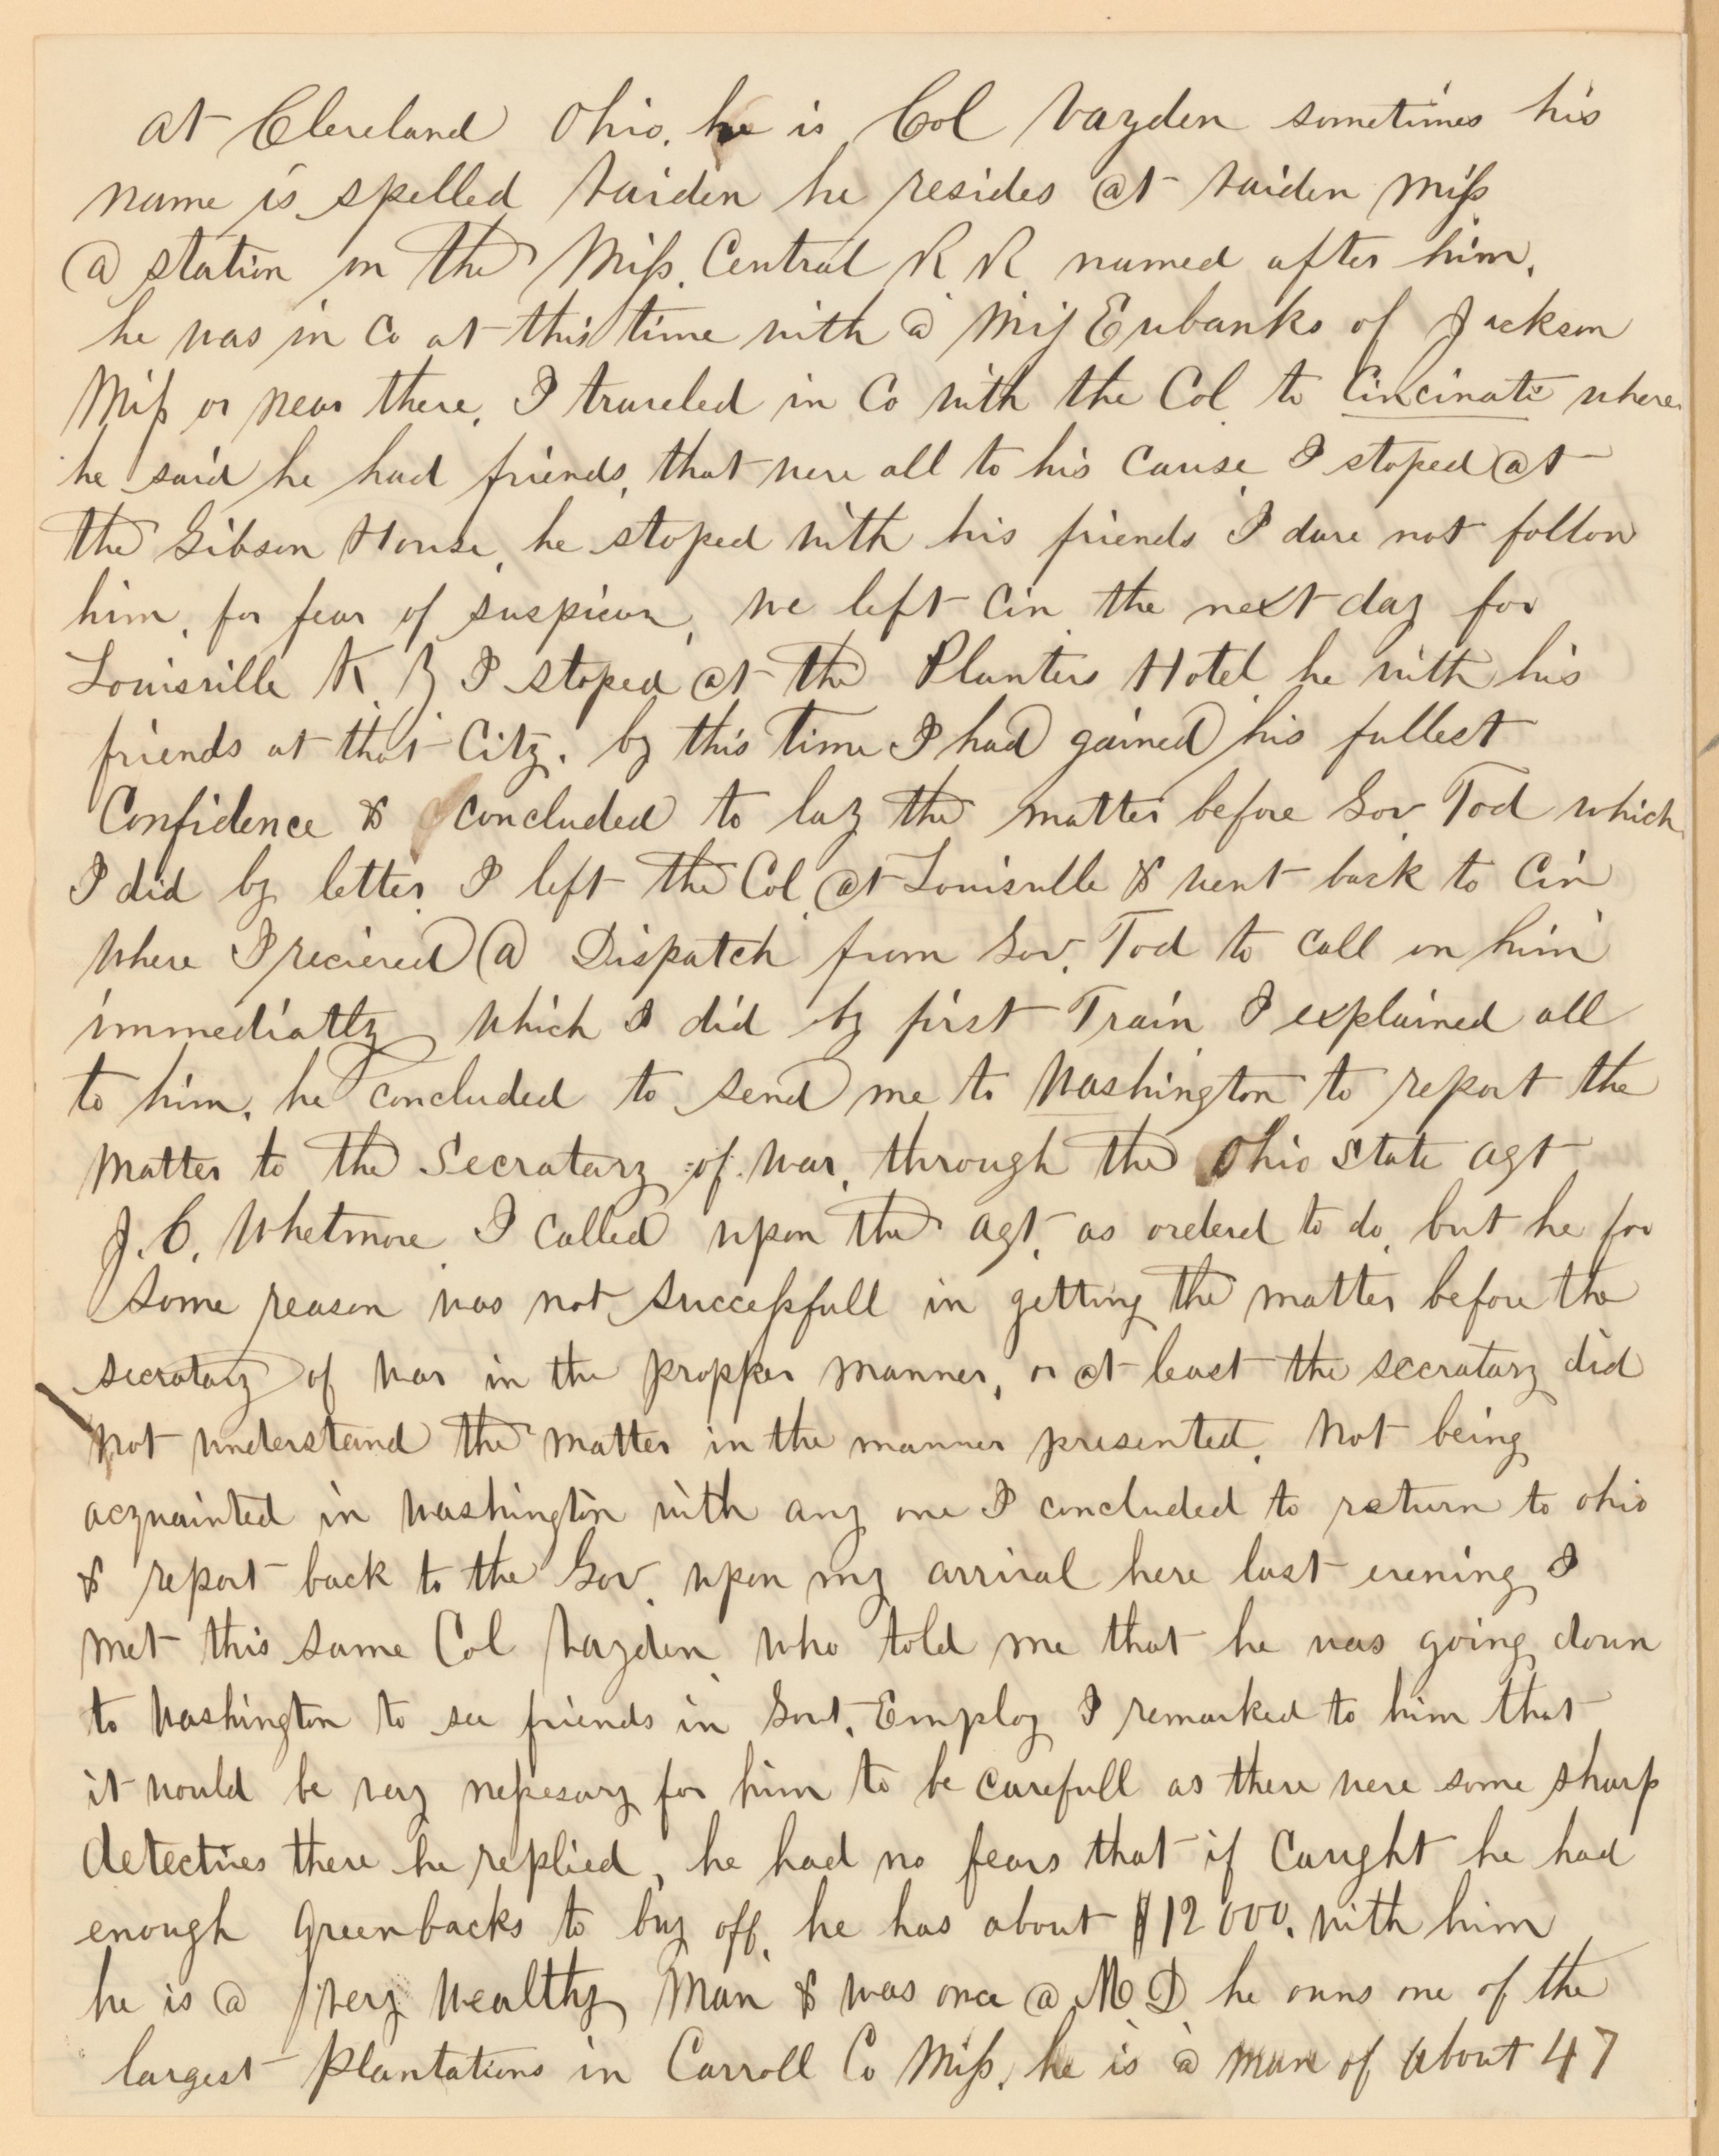 at Cleveland Ohio. he is Col Vayden sometimes his
name is spelled Vaiden he resides @t Vaiden Miss
@ station in the Miss. Central R R named after him.
he was in Co at this time with @ Mij Eubanks of Jackson
Miss or near there. I traveled in Co with the Col to Cincinati where
he said he had friends, that were all to his cause. I stoped @t
the Gibson House, he stoped with his friends I dare not follow
him, for fear of suspicion, we left Cin the next day for
Louisville K. Y I stoped @t the Planters Hotel he with his
friends at that City. by this time I had gained his fullest
Confidence & concluded to lay the matter before Gov Tod which
I did by letter. I left the Col @t Louisville & went back to Cin
where I recieved @ Dispatch from Gov. Tod to call on him
immediatly which I did by first Train I explained all
to him. he concluded to send me to Washington to report the
Matter to the Secratary of War, through the Ohio State agt
J. C. Whetmore. I called upon the agt. as ordered to do, but he for
some reason was not successfull in getting the matter before the
secratary of War in the propper manner, or @t least the secratary did
not understand the matter in the manner presented. Not being
acquainted in Washington with any one I concluded to return to ohio
& report back to the Gov. upon my arrival here last evening I
met this same Col Vayden who told me that he was going down
to Washington to see friends in Govt. Employ I remarked to him that
it would be very nessesary for him to be carefull as there were some sharp
detectives there he replied, he had no fears that if Caught he had
enough Greenbacks to buy off, he has about $12000. with him
he is @ very wealthy Man & was once @ M D he owns one of the
largest Plantations in Carroll Co Miss. he is @ man of about 47